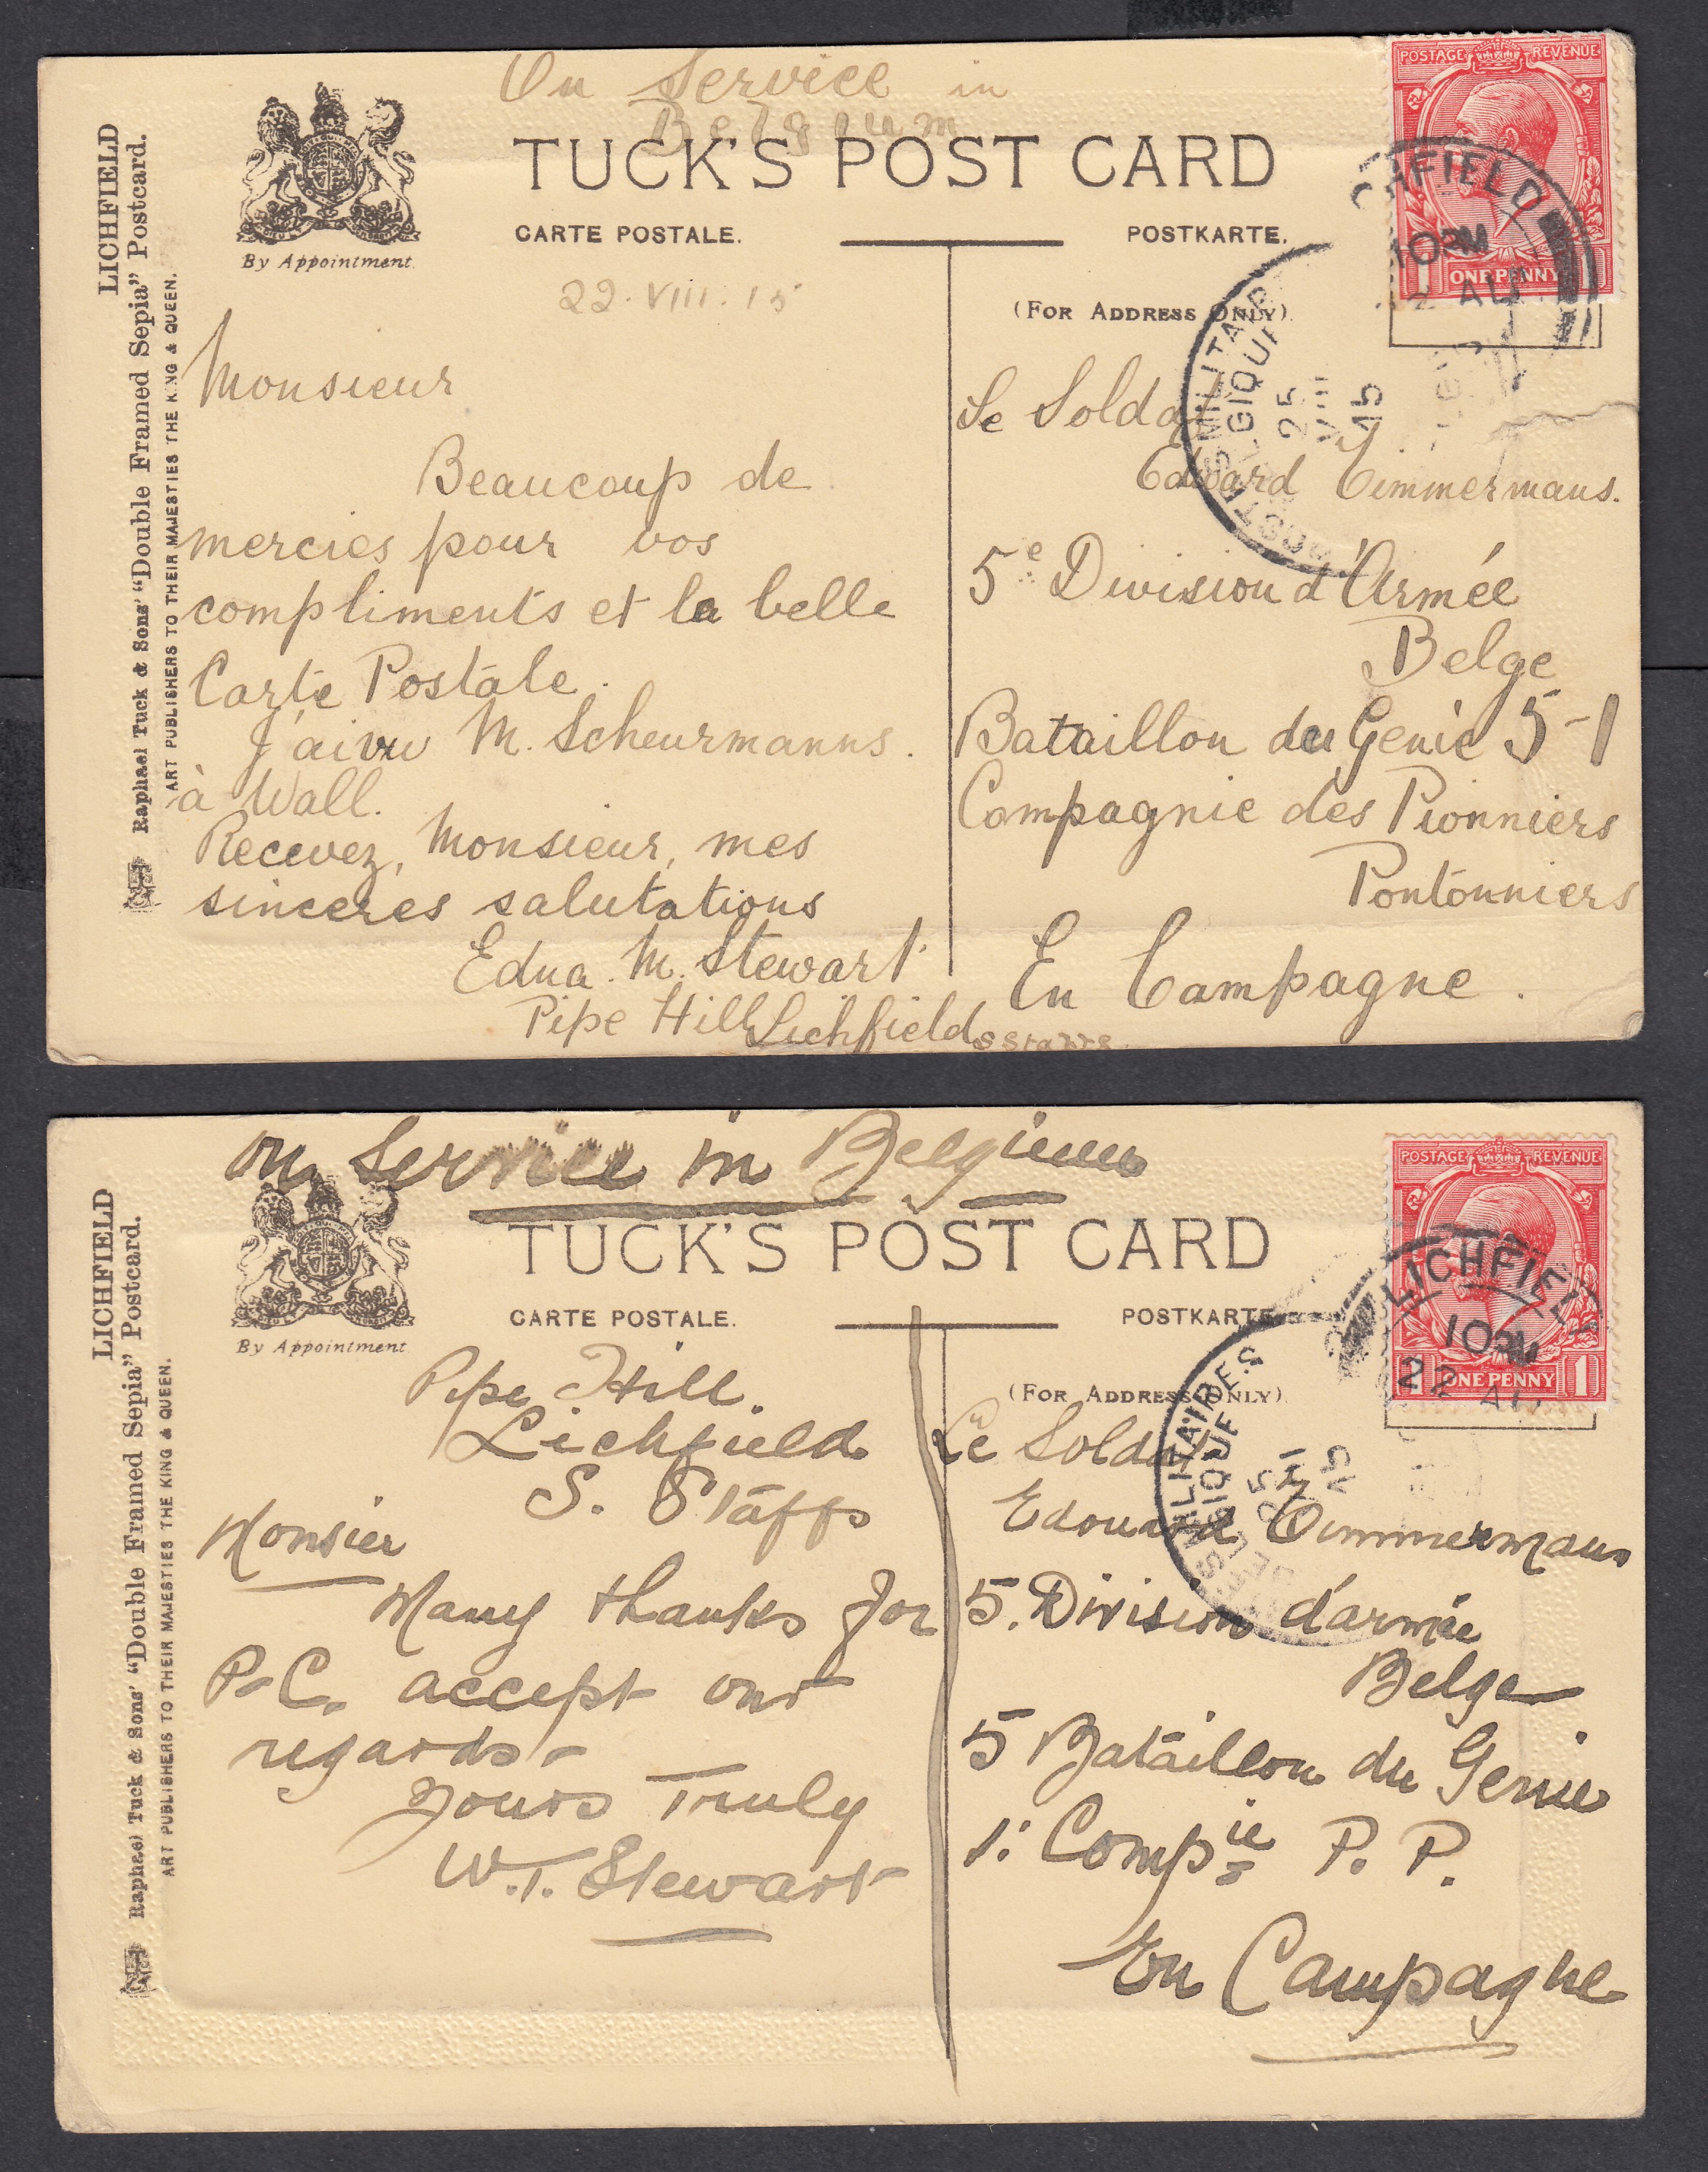 On Service in
Belgium
TUCK'S POST CARD
CARTE POSTALE.
POSTKARTE.
By Appointment
(FOR ADDRESS ONLY)
POSTAGE REVENUE
ONE PENNY
LICHFIELD
10 PM
2 AU
LICHFIELD
Raphael Tuck & Sons' "Double Framed Sepia" Postcard.
ART PUBLISHERS TO THEIR MAJESTIES THE KING & QUEEN.
22.VIII.15
Monsieur
Beaucoup de
mercies pour vos
compliments et la belle
Carte Postale.
J'ai vu M. Scheurmanns.
à Wall.
Recevez, Monsieur, mes
sinceres salutations
Edna. M. Stewart
Pipe Hill Lichfield S Staffs
MILITAIR
LGIQUE
25
VIII
15
Le Soldat
Edward Timmermans.
5e Division d'Armée
Belge
Bataillon du Genie 5-1
Compagnie des Pionniers
Pontonniers
En Campagne.
on Service in Belgium
TUCK'S POST CARD
CARTE POSTALE.
POSTKARTE.
By Appointment
(FOR ADDRESS ONLY)
POSTAGE REVENUE
1 ONE PENNY 1
LICHFIELD
10 PM
22 AU
LICHFIELD
Raphael Tuck & Sons' "Double Framed Sepia" Postcard.
ART PUBLISHERS TO THEIR MAJESTIES THE KING & QUEEN.
Pipe Hill.
Lichfield
S. Staffs
Monsier
Many thanks for
P.C. accept our
regards-
Yours Truly
W.T. Stewart
MILITAIRES
GIQUE
25
VIII
15
Le Soldat
Edouard Timmermans
5. Division d'armée
Belge
5 Bataillon du Genie
1: Compie P. P.
En Campagne